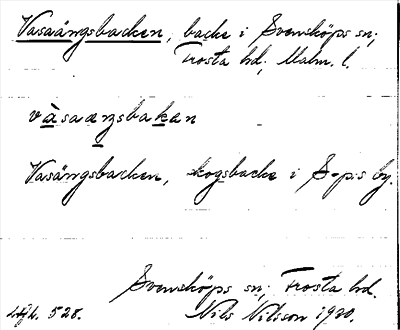 Vasaängsbacken, backe i Svensköps sn;
Frosta hd; Malm. l.
vàsaæŋsbakən
Vasängsbacken, skogsbacke i S-p:s by.
Svensköps sn; Frosta hd.
528. Nils Nilsson 1920.